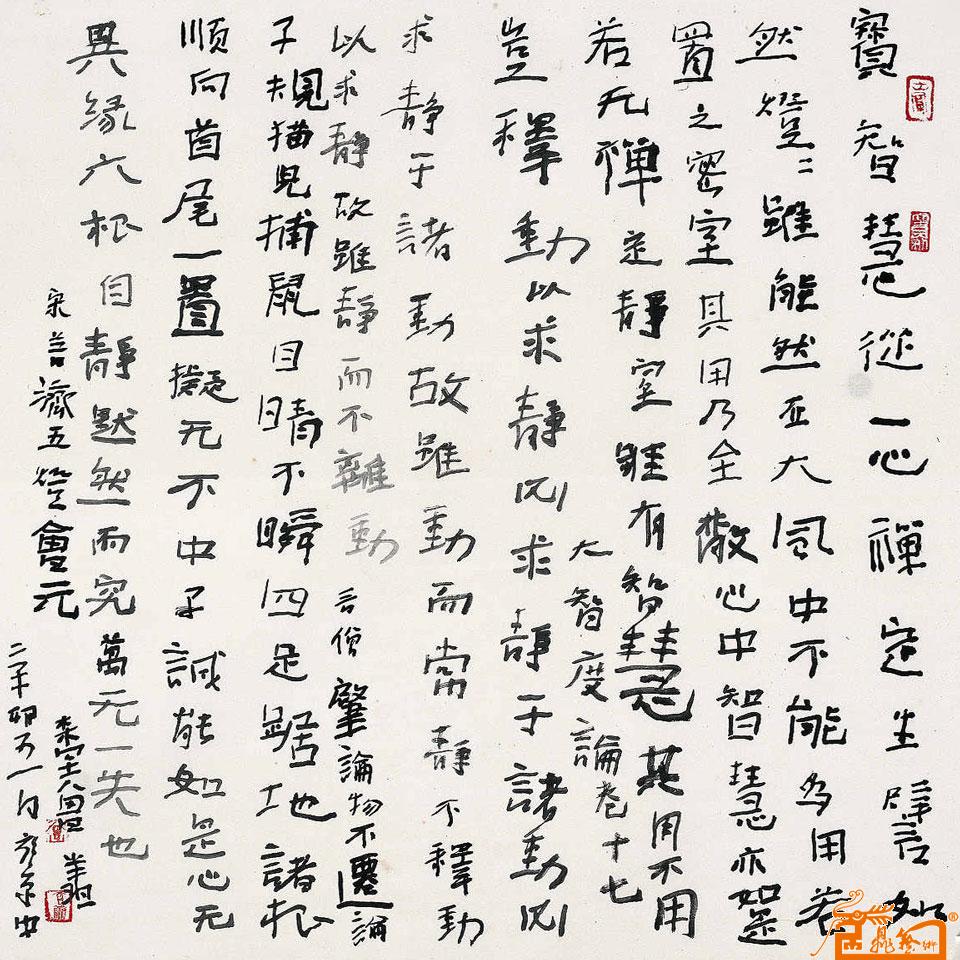 寶智慧從一心禪定生譬如
然燈〻雖能然在大風中不能為用若
置之密室其用乃全散心中智慧亦如是
若无禪定靜室雖有智慧其用不用
大智度論卷十七
豈釋動以求靜必求靜于諸動必
求靜于諸動故雖動而常靜不釋動
以求靜故雖靜而不離動 僧肇論物不遷論
子夫見猫兒捕鼠目睛不瞬四足踞地諸根
順向首尾一置擬无不中子誠能如是心无
異緣六根自靜默然而究萬无一失也
宋普濟五燈會元